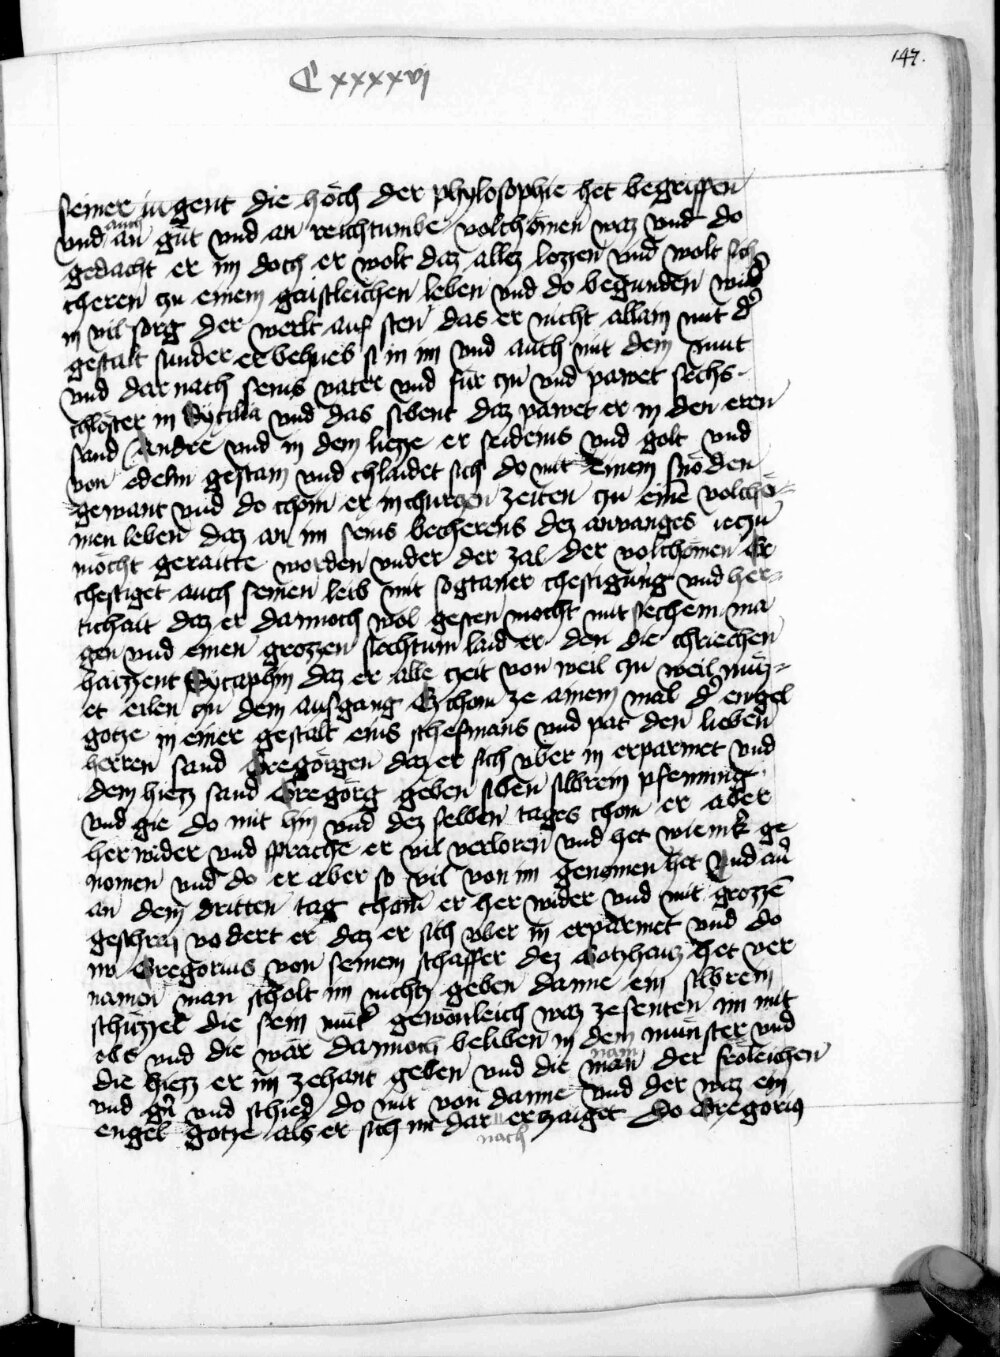 147.
C xxxxvj
seiner iugent die hoͤch der phylosophie het begriffen
vnd auch an guͤt vnd an reichtumbe volchoͤmen waz vnd do
gedacht er im doch er wolt daz allez lozzen vnd wolt sich
cheren zu einem gaistleichen leben vnd do begunden wid͛
in vil sorg der werlt auf sten das er nicht allain mit d͛
gestalt sunder er behueb si in im vnd auch mit dem muͤt
vnd dar nach seins vater vnd fuͤr zu vnd pawet sechs
chloͤster in Cycilia vnd das sibent daz pawet er in den eren
sand Andre vnd in dem liezze er seidens vnd golt vnd
von edelm gestain vnd chlaidet sich do mit einem snoͤden
gewant vnd do chom er in churczen zeiten zu eine͂ volcho͂-
men leben daz an im seins becherens dez anvanges ieczu
moͤcht geraitte worden vnder der zal der volchomen Er
chestiget auch seinen leib mit sogtaner chestigung vnd her-
tichait daz er dannoch wol gesten mocht mit siechem ma
gen vnd einen grozzen siechtum laid er den die chriechen
haizzent Sycaphin daz er alle zeit von weil zu weil muͤz-
et eilen zu dem aufgang Ez chom ze ainem mal d͛ engel
gotze in einer gestalt eins schefmans vnd pat den lieben
herren sand Gregoͤrgen daz er sich vber in erparmet vnd
dem hiez sand Gregoͤrg geben siben silbrein pfenning
vnd gie do mit hin vnd dez selben tages chom er aber
her wider vnd sprache er vil verloren vnd het wienik ge
nomen vnd do er aber so vil von im genomen het Vnd an͂
an dem dritten tag chom er her wider vnd mit grozze͂
geschrai vodert er daz er sich vber in erparmet vnd do
nv Gregorius von seinem schaffer dez Gotzhauz het ver
namen man scholt im nichtz geben danne ein silbrein
schuͤzzel die sein muͤt͛ gewonleich waz zesenten im mit
obs vnd die waͤr dannoch beliben in dem muͤnster vnd
die hiez er im zehant geben vnd die nam man der froͤleichen
vnd gie͂ vnd schied do mit von danne vnd der waz ein
engel gotze als er sich im dar nach erzaiget Do Gregorius